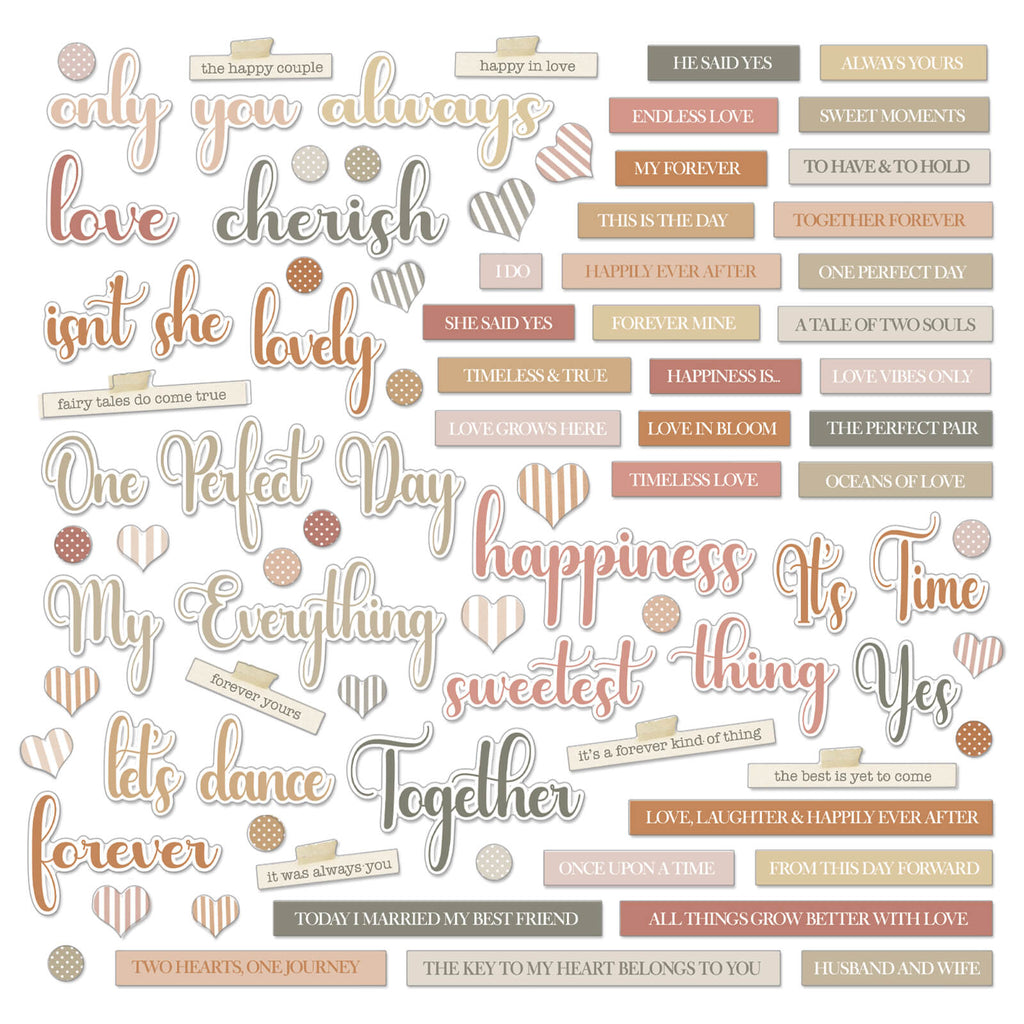 the happy couple
happy in love
HE SAID YES
ALWAYS YOURS
only you always
ENDLESS LOVE
SWEET MOMENTS
MY FOREVER
TO HAVE & TO HOLD
love
cherish
THIS IS THE DAY
TOGETHER FOREVER
I DO
HAPPILY EVER AFTER
ONE PERFECT DAY
isn't she
lovely
SHE SAID YES
FOREVER MINE
A TALE OF TWO SOULS
TIMELESS & TRUE
HAPPINESS IS...
LOVE VIBES ONLY
fairy tales do come true
LOVE GROWS HERE
LOVE IN BLOOM
THE PERFECT PAIR
One Perfect Day
TIMELESS LOVE
OCEANS OF LOVE
happiness
It's Time
My Everything
sweetest thing
Yes
forever yours
it's a forever kind of thing
let's dance
Together
the best is yet to come
LOVE, LAUGHTER & HAPPILY EVER AFTER
forever
it was always you
ONCE UPON A TIME
FROM THIS DAY FORWARD
TODAY I MARRIED MY BEST FRIEND
ALL THINGS GROW BETTER WITH LOVE
TWO HEARTS, ONE JOURNEY
THE KEY TO MY HEART BELONGS TO YOU
HUSBAND AND WIFE